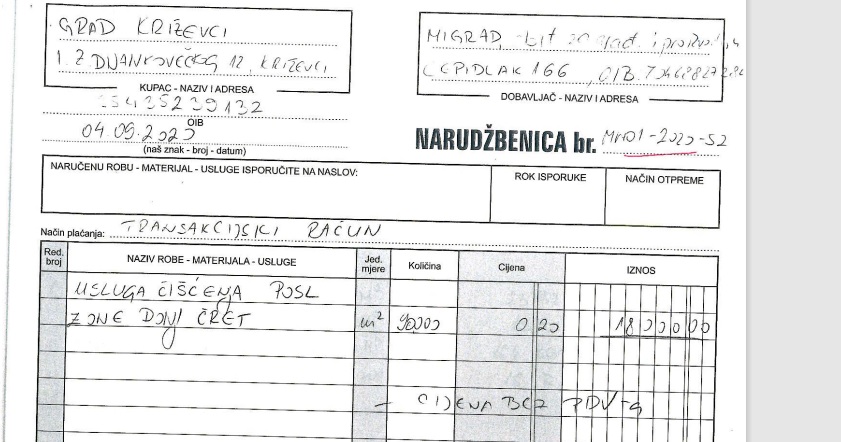 GRAD KRIŽEVCI
I. Z. DIJANKOVEČKOG 12, KRIŽEVCI
KUPAC - NAZIV I ADRESA
35435239132
OIB
04.09.2020
(naš znak - broj - datum)
MIGRAD, i
LEPIDLAK 166, OIB.
DOBAVLJAČ - NAZIV I ADRESA
NARUDŽBENICA br. MN01-2020-52
NARUČENU ROBU - MATERIJAL - USLUGE ISPORUČITE NA NASLOV:
ROK ISPORUKE
NAČIN OTPREME
Način plaćanja: TRANSAKCIJSKI RAČUN
Red. broj NAZIV ROBE - MATERIJALA - USLUGE Jed. mjere Količina Cijena IZNOS
USLUGA ČIŠĆENJA POSL
ZONE DONJI ČRET m² 90000 0 20 18000 00
- CIJENA BEZ PDV-a